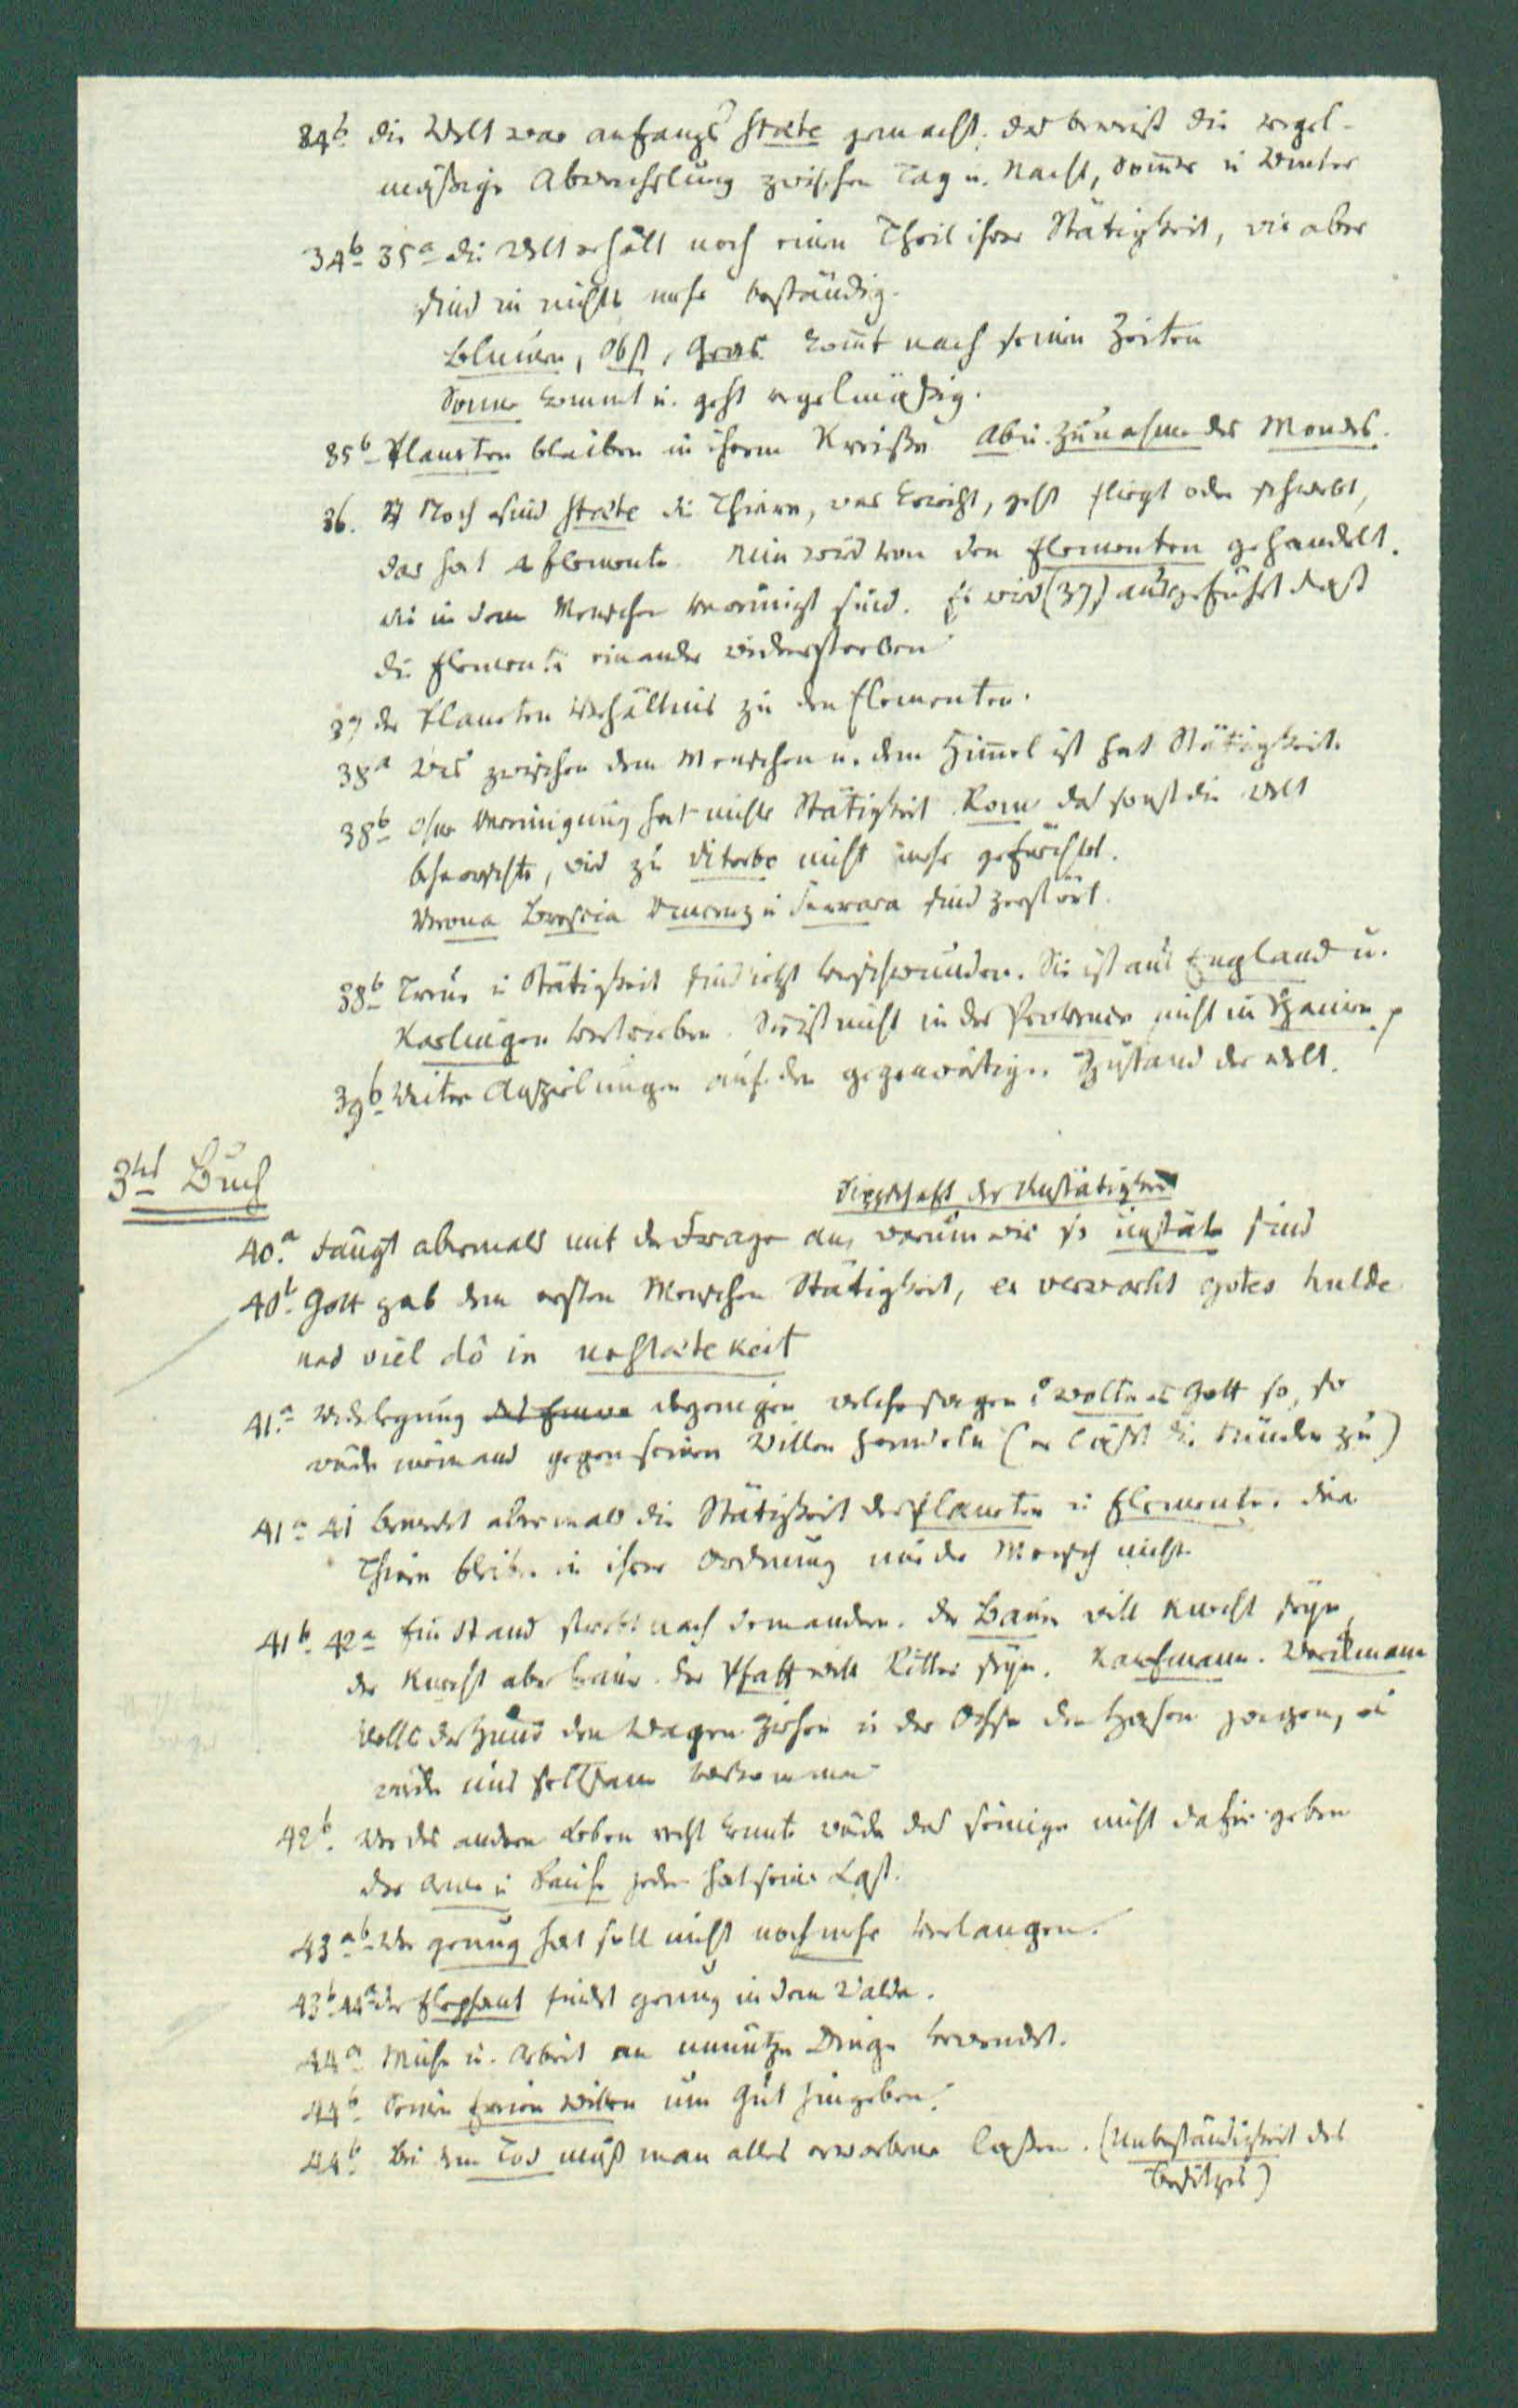 34b. die Welt war anfangs staete gemacht. das beweist die regel-
mäßige Abwechslung zwischen Tag u. Nacht, Som̅er u Winter
34b 35a die Welt erhält noch einen Theil ihrer Stätigkeit, wir aber
sind in nichts mehr beständig.
Blumen, Obst, Gras kom̅t nach seinen Zeiten
Sonne kommt u. geht regelmäßig.
35b Planeten bleiben in ihrem Kreiße Ab u. Zunahme des Mondes.
36. Noch sind staete die Thiere, was kriecht, geht fliegt oder schwebt,
das hat 4 Elemente. Nun wird von den Elementen gehandelt.
die in dem Menschen vereinigt sind. Es wird (37) ausgeführt daß
die Elemente einander widerstreben
37 der Planeten Verhältnis zu den Elementen.
38a Was zwischen dem Menschen u. dem Him̅el ist hat Stätigkeit.
38b ohne Vereinigung hat nichts Stätigkeit. Rom das sonst die Welt
beherrschte, wird zu Viterbe nicht mehr gefürchtet.
Verona Brescia Vincenz u Ferrara sind zerstört.
38b Treue u Stätigkeit sind jetzt verschwunden. Sie ist aus England u.
Karlingen vertrieben. Sie ist nicht in der Provence nicht in Spanien
39b Weitere Anspielungen auf den gegenwärtigen Zustand der Welt.
3tes Buch
der Unstätigkeit
40.a Fängt abermals mit der Frage an, warum wir so unstäte sind
40b. Gott gab dem ersten Menschen Stätigkeit, er verworht gotes hulde
und viel dô in unstaetekeit
41.a Widerlegung derjenigen welche sagen: wollte es Gott so, so
würde niemand gegen seinen Willen handeln (er läßt die Sünden zu)
41a 41 bemerkt abermals die Stätigkeit der Planeten u Elemente. die
Thiere bleiben in ihrer Ordnung nur der Mensch nicht.
41b. 42a Ein Stand strebt nach dem andern. der Bauer will Knecht seyn,
der Knecht aber Bauer. der Pfaff will Ritter seyn. Kaufmann. Werkmann
Wollte der Hund den Wagen ziehen u der Ochse den Hasen jagen, es
würde uns seltsam vorkommen
42b. Wer des andern Leben recht kennte würde das seinige nicht dafür geben
der Arme u Reiche jeder hat seine Last.
43ab Wer genug hat soll nicht noch mehr verlangen.
43b 44a der Elephant findet genug in dem Walde.
44a Mühe u. Arbeit an unnütze Dinge verwendet.
44b Seinen freien Willen um Gut hingeben.
44b. Bei dem Tod muß man alles erworbene laßen. (Unbeständigkeit des
Besitzes)